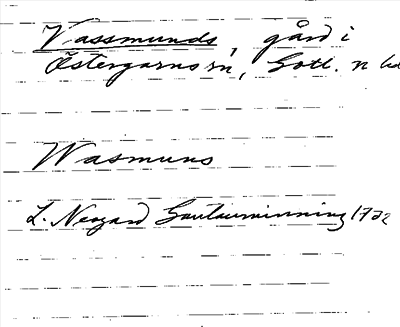 Vassmunds, gård i
Östergarns sn, Gotl. n
Wasmuns
L. Neogard Gautauminning 1732